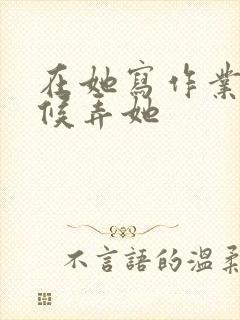 在她寫作業
候弄她
不言語的溫柔